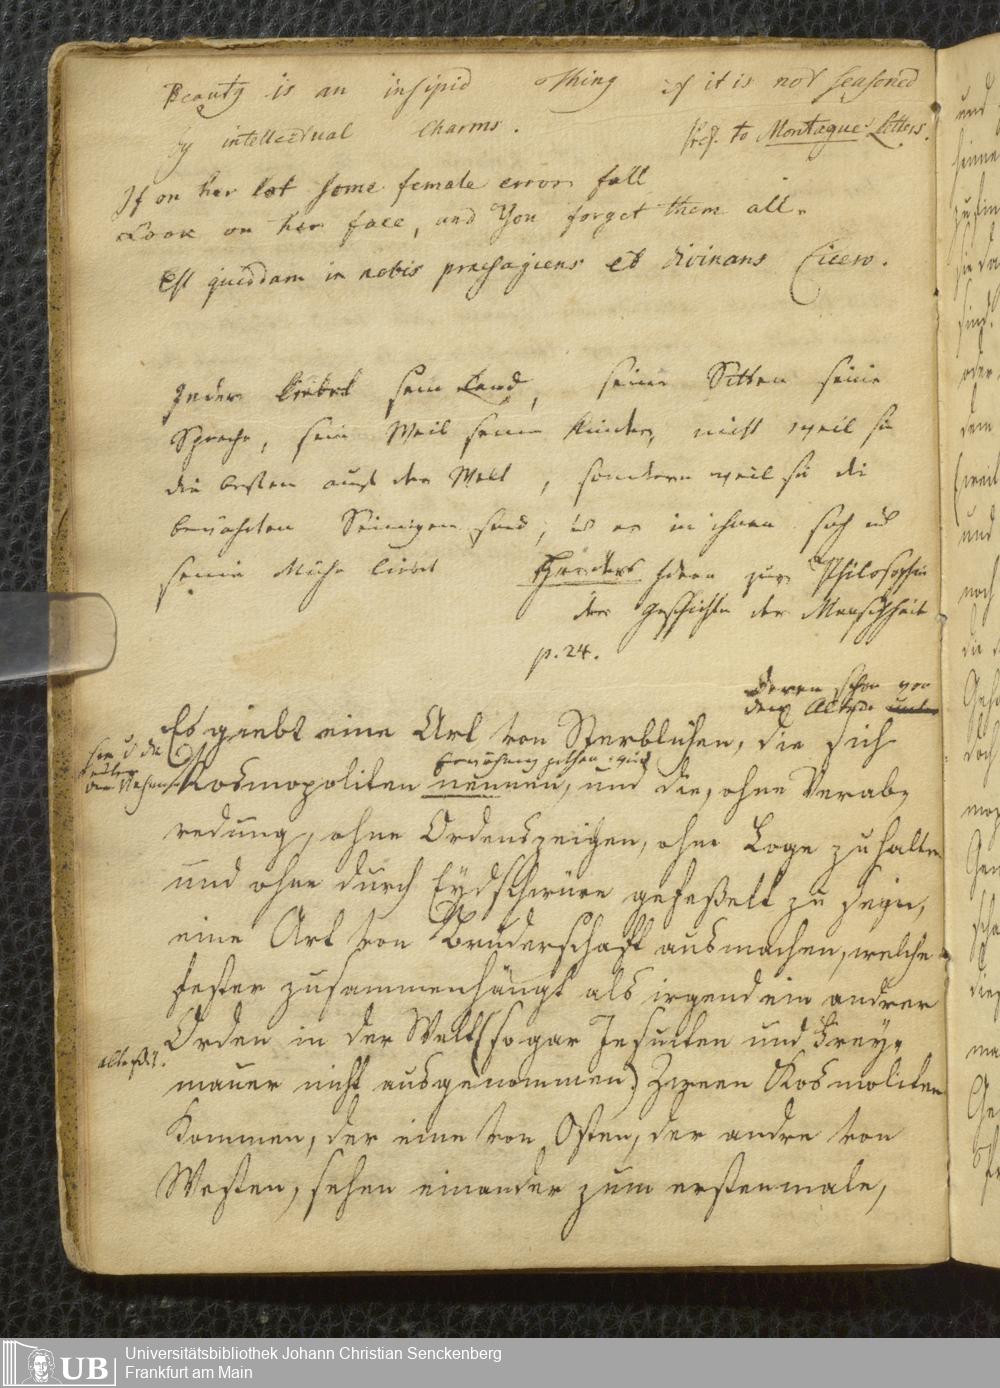 Beauty is an insipid thing if it is not seasoned
by intellectual Charms.
Pref. to Montague Letters.
If on her lot some female errors fall
Look on her face, and You forget them all.
Est quiddam in nobis praesagiens et divinans Cicero.
Jeder liebet sein Land, seine Sitten seine
Sprache, sein Weib seine Kinder, nicht weil sie
die besten auf der Welt, sondern weil sie die
bewährten Seinigen sind, u er in ihnen sich u
seine Mühe liebt Herders Ideen zur Philosophie
der Geschichte der Menschheit
p. 24.
deren schon von
den Alten
Es giebt eine Art von Sterblichen, die sich
Erwähnung gethan
Kosmopoliten nennen, und die, ohne Verab=
redung, ohne Ordenszeichen, ohne Loge zu halten
und ohne durch Eydschwüre gefeßelt zu seyn,
eine Art von Brüderschafft ausmachen, welche
fester zusammenhängt als irgend ein andrer
Orden in der Welt (sogar Jesuiten und Frey=
mauer nicht ausgenommen) Zween Kosmoliten
kommen, der eine von Osten, der andre von
Westen, sehen einander zum erstenmale,
Universitätsbibliothek Johann Christian Senckenberg
UB Frankfurt am Main